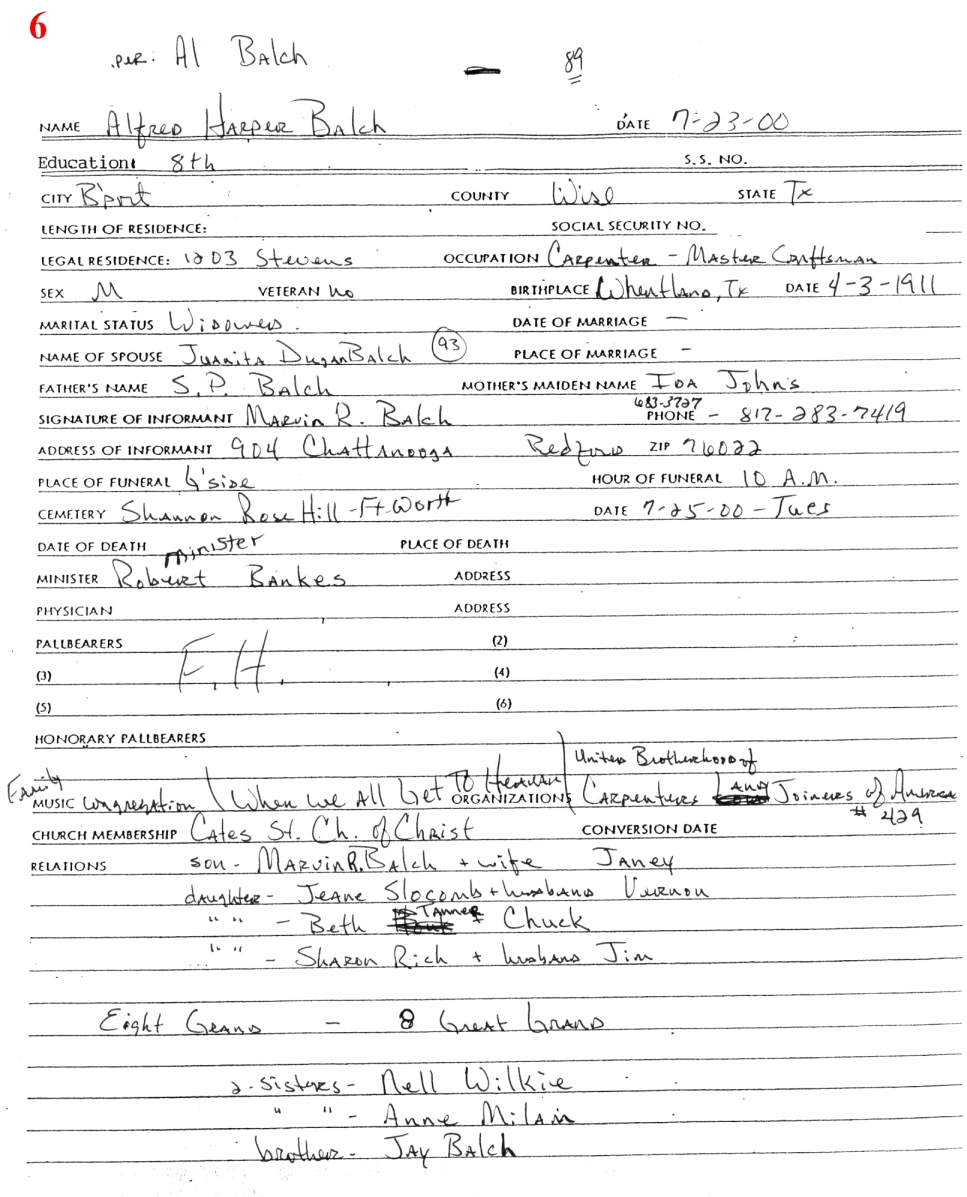 6
per: Al Balch — 89
NAME Alfred Harper Balch DATE 7-23-00
Education: 8th S.S. NO.
CITY B'port COUNTY Wise STATE Tx
LENGTH OF RESIDENCE: SOCIAL SECURITY NO.
LEGAL RESIDENCE: 1203 Stevens OCCUPATION Carpenter - Master Craftsman
SEX M VETERAN no BIRTHPLACE Wheatland, Tx DATE 4-3-1911
MARITAL STATUS Widowed. DATE OF MARRIAGE —
NAME OF SPOUSE Juanita Dugan Balch 93 PLACE OF MARRIAGE -
FATHER'S NAME S.P. Balch MOTHER'S MAIDEN NAME Ida Johns
683-3727
SIGNATURE OF INFORMANT Marvin R. Balch PHONE - 817-283-7419
ADDRESS OF INFORMANT 904 Chattanooga Bedford ZIP 76022
PLACE OF FUNERAL G'side HOUR OF FUNERAL 10 A.M.
CEMETERY Shannon Rose Hill - Ft. Worth DATE 7-25-00 - Tues
DATE OF DEATH PLACE OF DEATH
minister
MINISTER Robert Bankes ADDRESS
PHYSICIAN ADDRESS
PALLBEARERS (2)
(3) F.H. (4)
(5) (6)
HONORARY PALLBEARERS
United Brotherhood of
Family
MUSIC Congregation When we All Get To Heaven ORGANIZATIONS Carpenters and Joiners of America
# 429
CHURCH MEMBERSHIP Cates St. Ch. of Christ CONVERSION DATE
RELATIONS son - Marvin R. Balch + wife Janey
daughter - Jeane Slocomb + husband Vernon
" " - Beth Tanner + Chuck
" " - Sharon Rich + husband Jim
Eight Grand - 8 Great Grand
2 - Sisters - Nell Wilkie
" " - Anne Milam
brother - Jay Balch